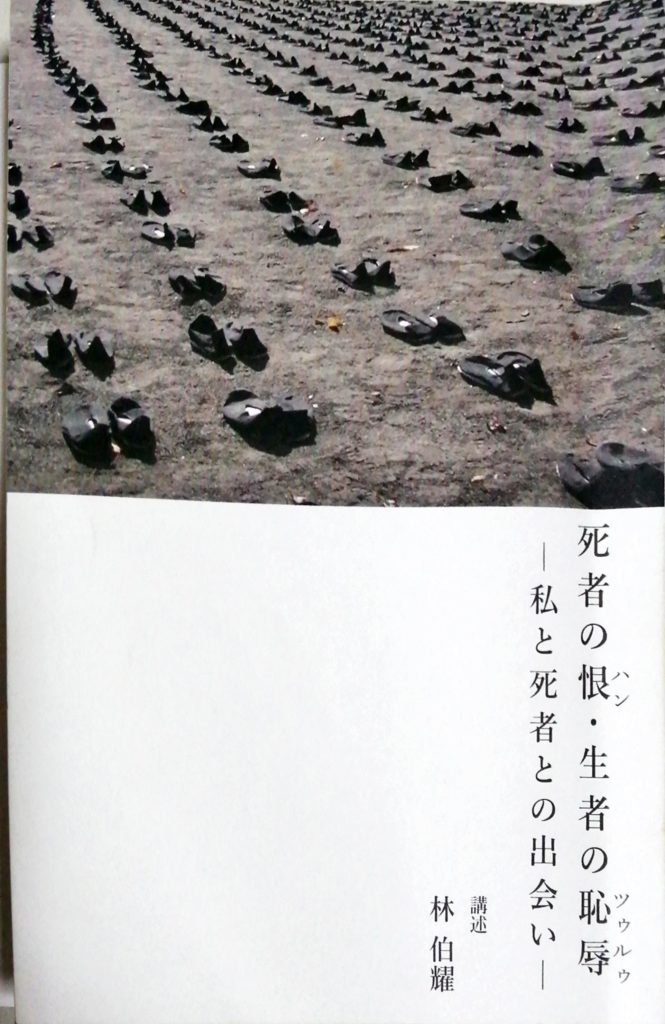 死者の恨・生者の恥辱
ハン
ツゥルゥ
―私と死者との出会い―
講述
林 伯耀